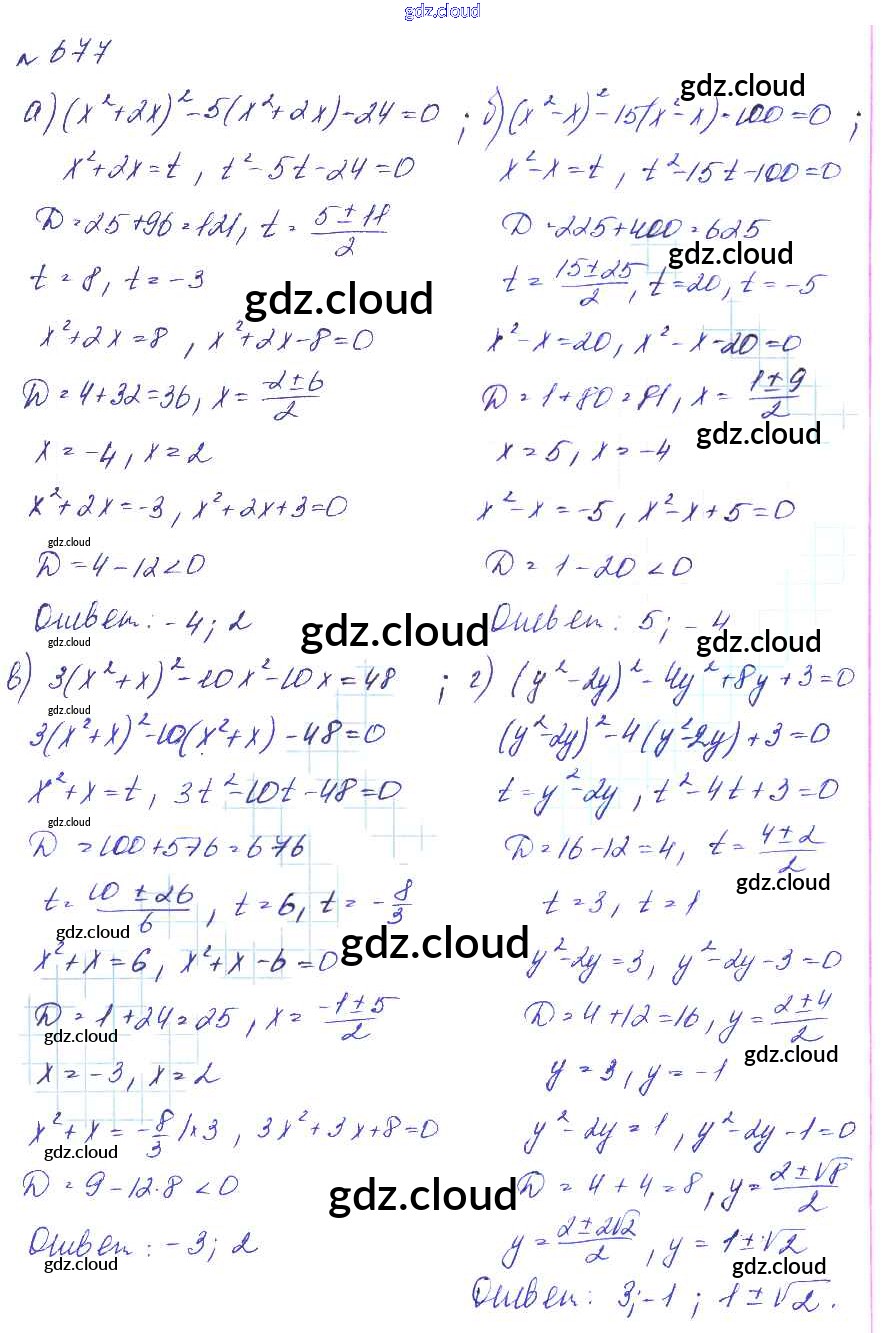 gdz.cloud
№ 677
а) (x²+2x)²-5(x²+2x)-24=0 ;
x²+2x=t, t²-5t-24=0
D=25+96=121, t=(5±11)/2
t=8, t=-3
gdz.cloud
x²+2x=8, x²+2x-8=0
D=4+32=36, x=(-2±6)/2
x=-4, x=2
x²+2x=-3, x²+2x+3=0
gdz.cloud
D=4-12<0
Ответ: -4; 2
gdz.cloud
gdz.cloud
б) (x²-x)²-15(x²-x)-100=0 ;
gdz.cloud
x²-x=t, t²-15t-100=0
D=225+400=625
gdz.cloud
t=(15±25)/2, t=20, t=-5
x²-x=20, x²-x-20=0
D=1+80=81, x=(1±9)/2
gdz.cloud
x=5, x=-4
x²-x=-5, x²-x+5=0
D=1-20<0
Ответ: 5; -4
gdz.cloud
в) 3(x²+x)²-10x²-10x=48 ;
gdz.cloud
3(x²+x)²-10(x²+x)-48=0
x²+x=t, 3t²-10t-48=0
gdz.cloud
D=100+576=676
t=(10±26)/6, t=6, t=-8/3
gdz.cloud
gdz.cloud
x²+x=6, x²+x-6=0
D=1+24=25, x=(-1±5)/2
gdz.cloud
x=-3, x=2
x²+x=-8/3 /×3, 3x²+3x+8=0
gdz.cloud
D=9-12·8<0
gdz.cloud
Ответ: -3; 2
gdz.cloud
г) (y²-2y)²-4y²+8y+3=0
(y²-2y)²-4(y²-2y)+3=0
t=y²-2y, t²-4t+3=0
D=16-12=4, t=(4±2)/2
gdz.cloud
t=3, t=1
y²-2y=3, y²-2y-3=0
D=4+12=16, y=(2±4)/2
gdz.cloud
y=3, y=-1
y²-2y=1, y²-2y-1=0
D=4+4=8, y=(2±√8)/2
gdz.cloud
y=(2±2√2)/2, y=1±√2
gdz.cloud
Ответ: 3;-1; 1±√2.